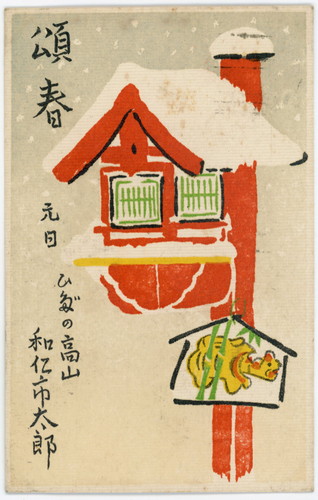 頌春
元日
ひだの高山
和仁市太郎